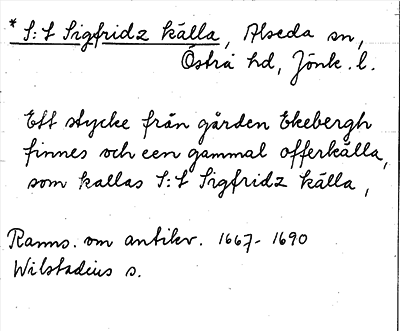 * S:t Sigfridz källa, Alseda sn,
Östra hd, Jönk. l.
Ett stycke från gården Ekebergh
finnes och een gammal offerkälla,
som kallas S:t Sigfridz källa,
Ranns. om antikv. 1667-1690
Wilstadius s.